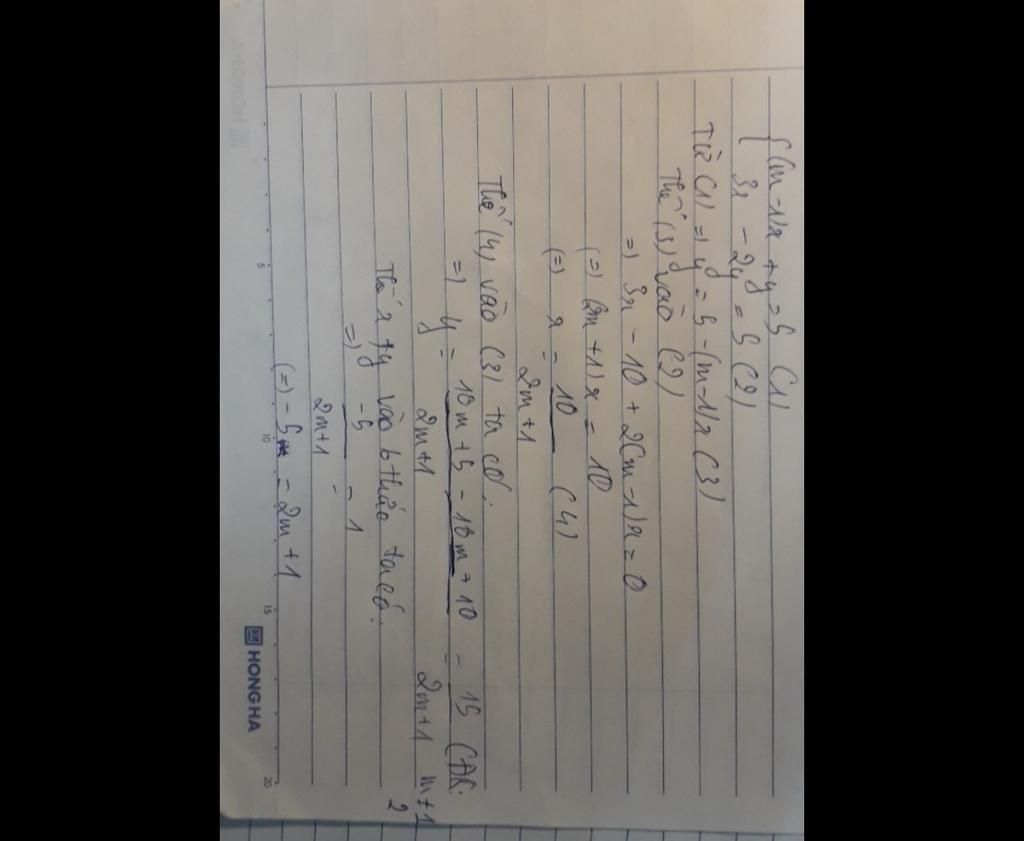 {(m-1)x + y = 5 (1)
3x - 2y = 5 (2)
Từ (1) => y = 5 - (m-1)x (3)
Thế (3) vào (2)
=> 3x - 10 + 2(m-1)x = 0
(=) (2m+1)x = 10
(=) x = 10 / 2m+1 (4)
Thế (4) vào (3) ta có:
=> y = 10m+5-10m+10 / 2m+1 = 15 / 2m+1 (ĐK:
m ≠ 1/2
Thế x, y vào bthức ta có:
=) -5 / 2m+1 = 1
(=) -5 = 2m+1
5 10 15 20
HONGHA